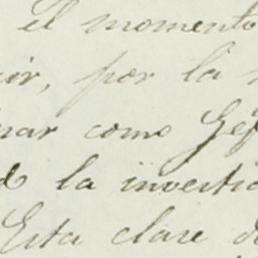 el momento
ir, por la
nar como Gef
d la investi
Esta clase d